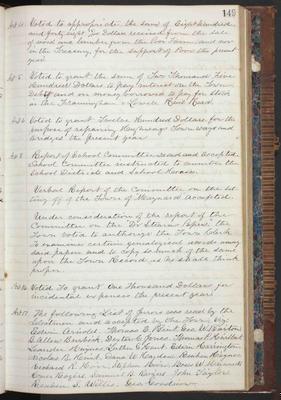 149
Art 4. Voted to appropriate the sum of Eight hundred
and forty eight Dollars received from the sale
of wood and lumber from the Town Farm and now
in the Treasury, for the support of Poor the present
year.
Art 5. Voted to grant the sum of Two Thousand Five
Hundred Dollars to pay Interest on the Town
Debt and on money borrowed to pay for Stock
in the Framingham & Lowell Rail Road.
Art 6. Voted to grant Twelve Hundred Dollars for the
purpose of repairing Highways Townways and
Bridges the present year.
Art 8. Report of School Committee read and accepted.
School Committee instructed to number the
School Districts and School Houses.
Verbal Report of the Committee on the set
ting off of the Town of Maynard Accepted.
Under consideration of the report of the
Committee on the "Dr Stearns papers" the
Town voted to authorize the Town Clerk
To examine certain genealogical records among
said papers and to copy so much of the same
upon the Town Records as he shall think
proper.
Voted To grant One Thousand Dollars for
incidental expenses the present year.
The following List of Jurors was read by the
Selectmen and accepted by the Town, viz:
Thomas P. Hunt, Geo. W.
Leander Haynes,
Nicholas B. Hunt, Dana W. Hayden, Reuben Haynes
Stephen Moore,
Rogers, Samuel B. Rogers, John Taylor
Reuben S. Willis, Geo Goodnow